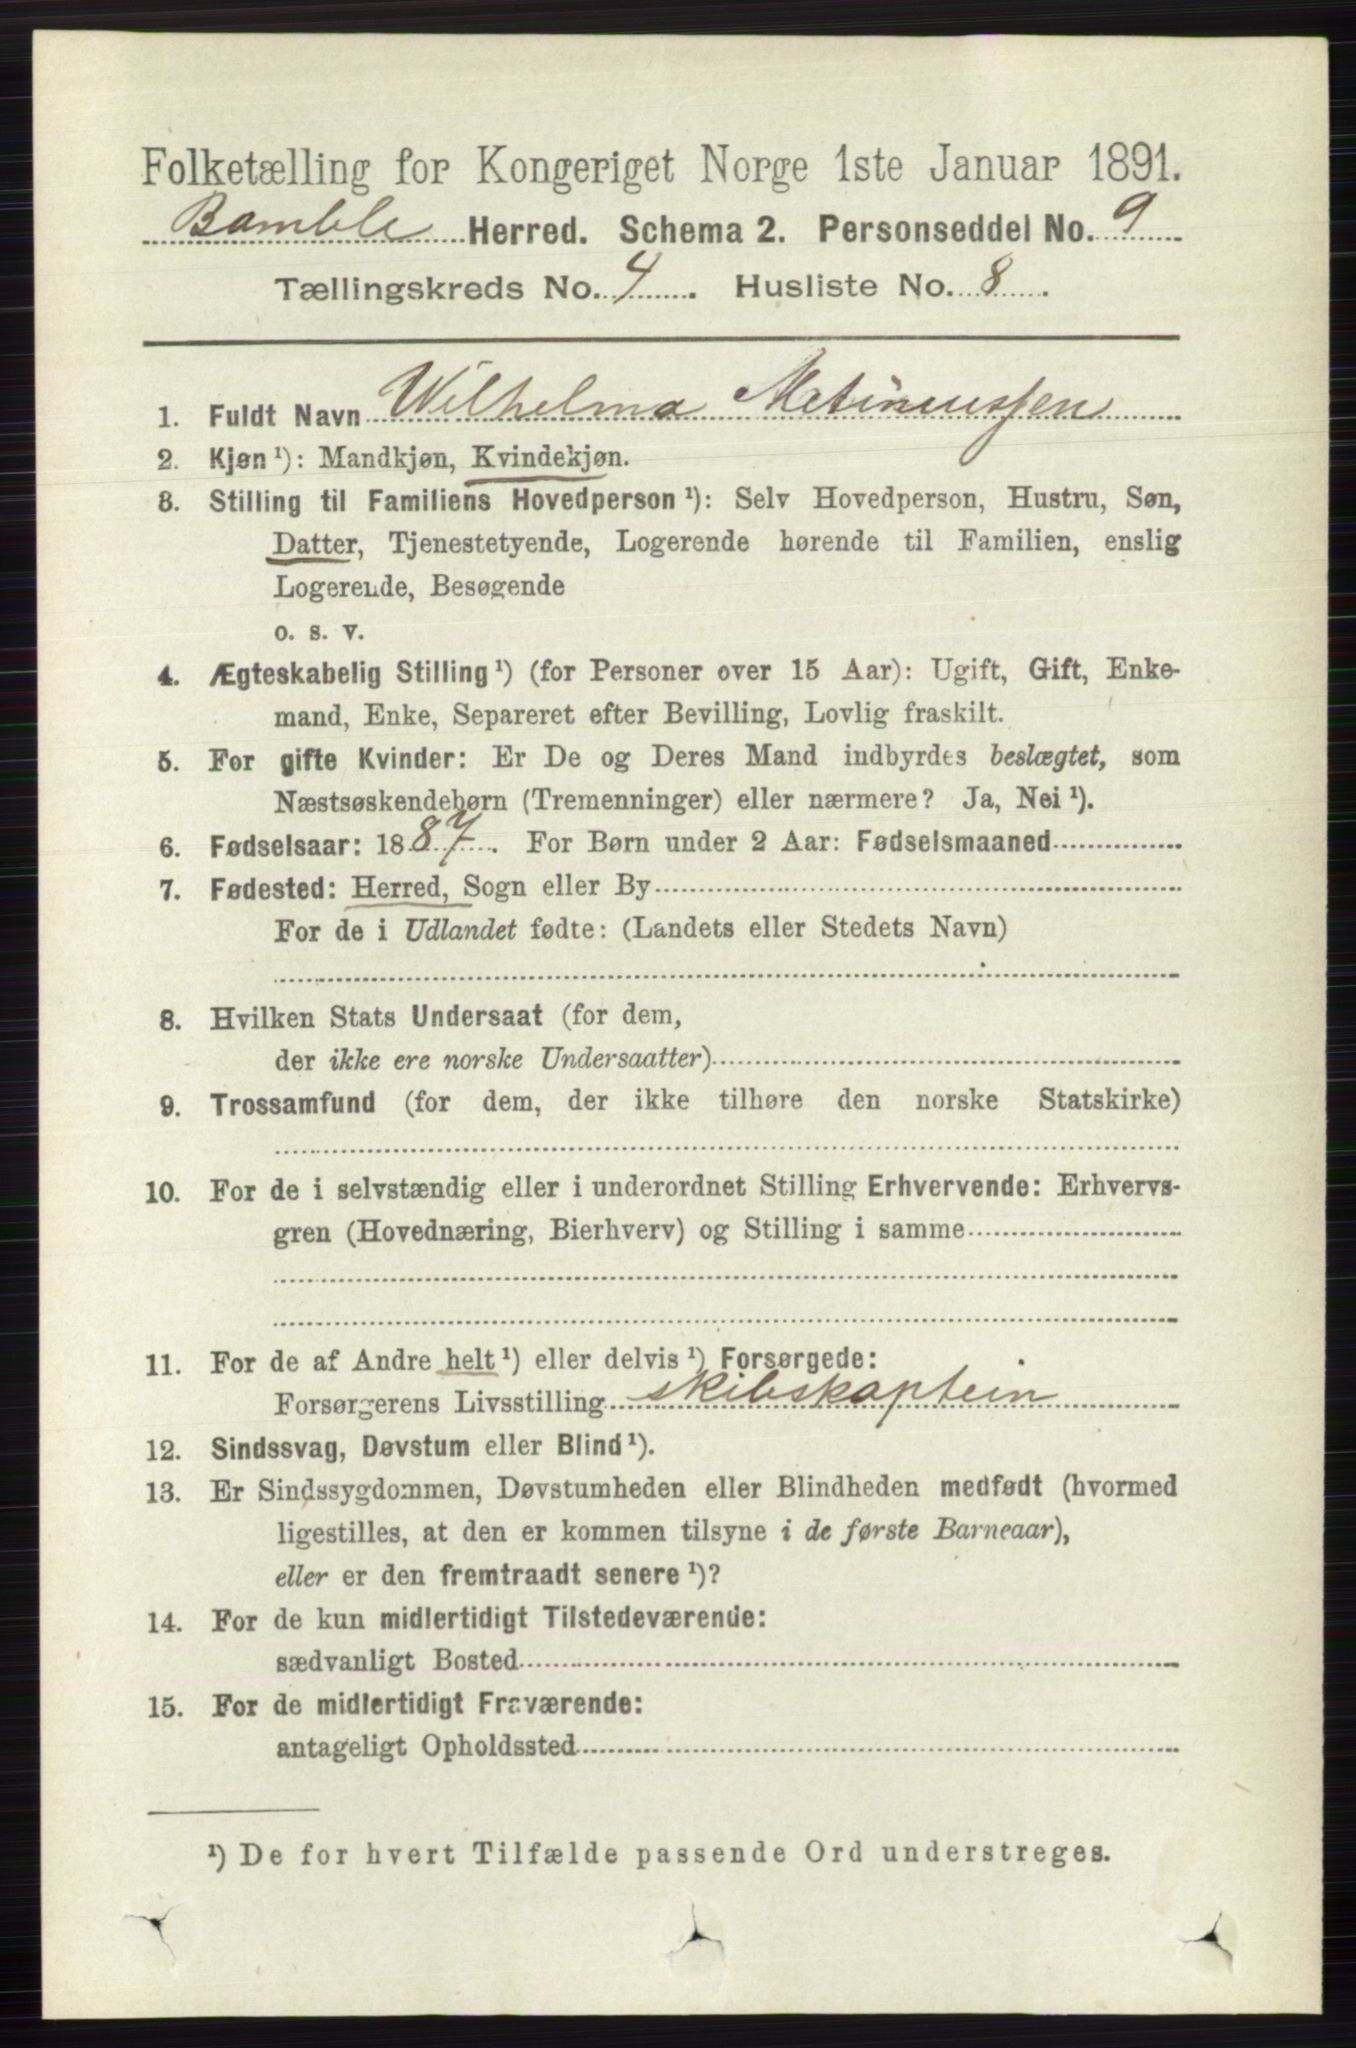 Folketælling for Kongeriget Norge 1ste Januar 1891.
Bamble Herred. Schema 2. Personseddel No. 9
Tællingskreds No. 4. Husliste No. 8.
1. Fuldt Navn Wilhelma Metinussen
2. Kjøn ¹): Mandkjøn, Kvindekjøn.
3. Stilling til Familiens Hovedperson ¹): Selv Hovedperson, Hustru, Søn,
Datter, Tjenestetyende, Logerende hørende til Familien, enslig
Logerende, Besøgende
o. s. v.
4. Ægteskabelig Stilling ¹) (for Personer over 15 Aar): Ugift, Gift, Enke-
mand, Enke, Separeret efter Bevilling, Lovlig fraskilt.
5. For gifte Kvinder: Er De og Deres Mand indbyrdes beslægtet, som
Næstsøskendebørn (Tremenninger) eller nærmere? Ja, Nei ¹).
6. Fødselsaar: 1887. For Børn under 2 Aar: Fødselsmaaned
7. Fødested: Herred, Sogn eller By
For de i Udlandet fødte: (Landets eller Stedets Navn)
8. Hvilken Stats Undersaat (for dem,
der ikke ere norske Undersaatter)
9. Trossamfund (for dem, der ikke tilhøre den norske Statskirke)
10. For de i selvstændig eller i underordnet Stilling Erhvervende: Erhvervs-
gren (Hovednæring, Bierhverv) og Stilling i samme
11. For de af Andre helt ¹) eller delvis ¹) Forsørgede:
Forsørgerens Livsstilling skibskaptein
12. Sindssvag, Døvstum eller Blind ¹).
13. Er Sindssygdommen, Døvstumheden eller Blindheden medfødt (hvormed
ligestilles, at den er kommen tilsyne i de første Barneaar),
eller er den fremtraadt senere ¹)?
14. For de kun midlertidigt Tilstedeværende:
sædvanligt Bosted
15. For de midlertidigt Fraværende:
antageligt Opholdssted
¹) De for hvert Tilfælde passende Ord understreges.